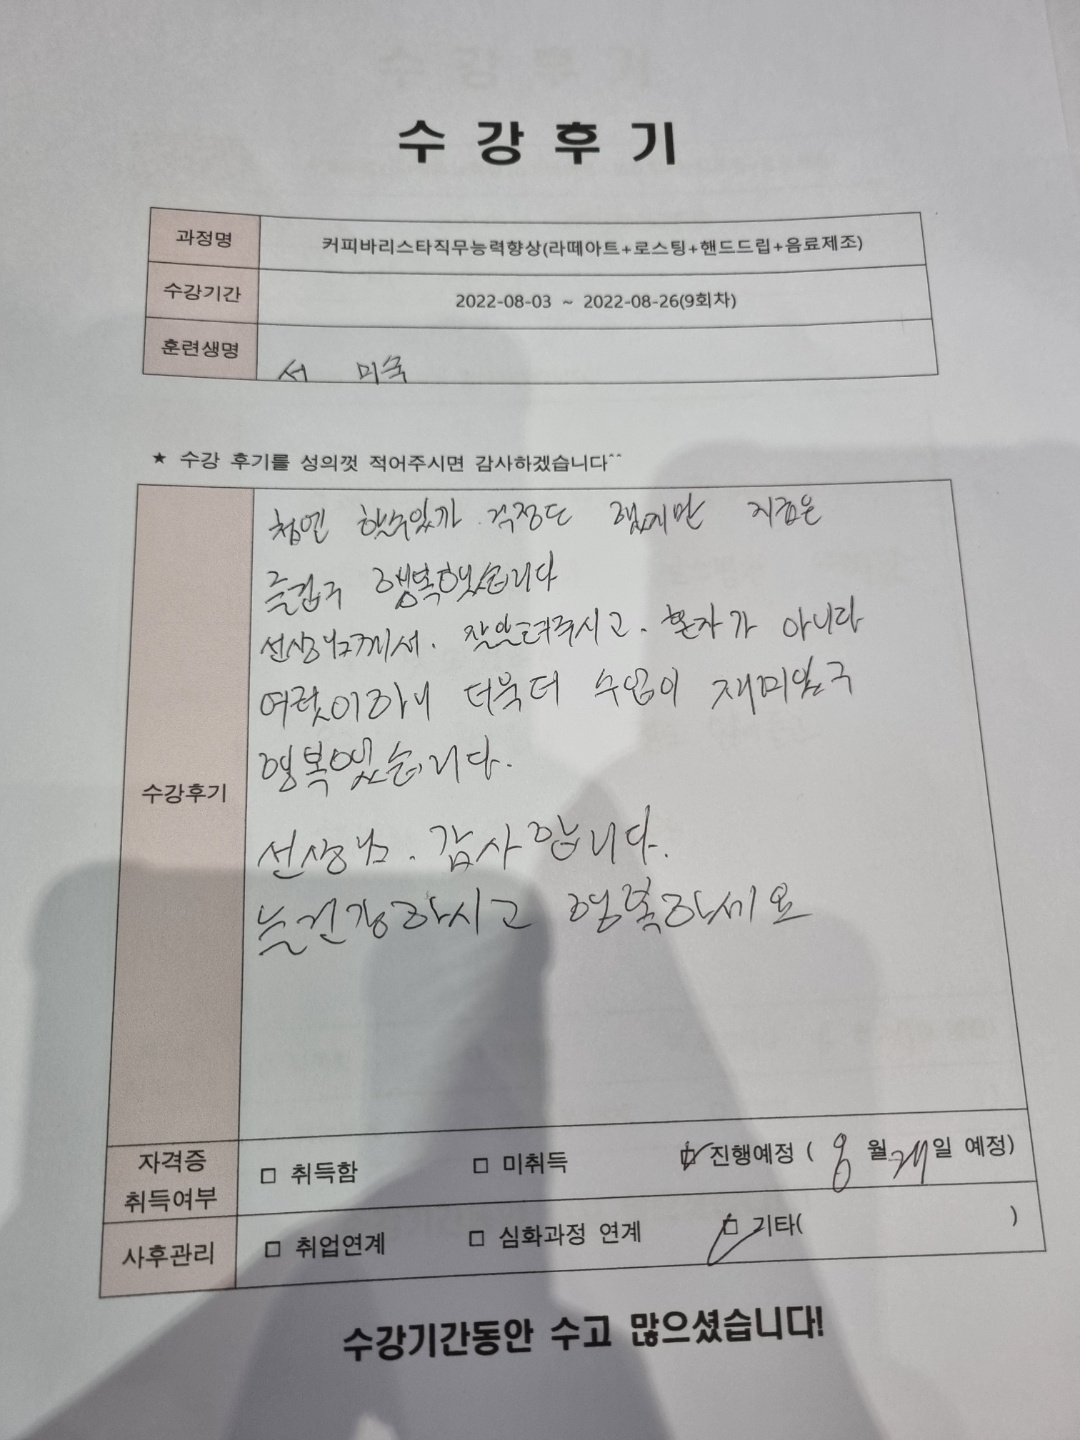 수강후기
과정명 커피바리스타직무능력향상(라떼아트+로스팅+핸드드립+음료제조)
수강기간 2022-08-03 ~ 2022-08-26(9회차)
훈련생명 서 미숙
★ 수강 후기를 성의껏 적어주시면 감사하겠습니다^^
첨엔 할수있까 걱정도 했지만 지금은
즐겁구 행복했습니다
선생님께서. 잘알려주시고. 혼자가 아니라
여럿이하니 더욱더 수업이 재미있구
행복했습니다.
수강후기
선생님. 감사합니다.
늘건강하시고 행복하세요
자격증 취득여부 □ 취득함 □ 미취득 □ 진행예정 ( 월 일 예정)
사후관리 □ 취업연계 □ 심화과정 연계 □ 기타( )
수강기간동안 수고 많으셨습니다!